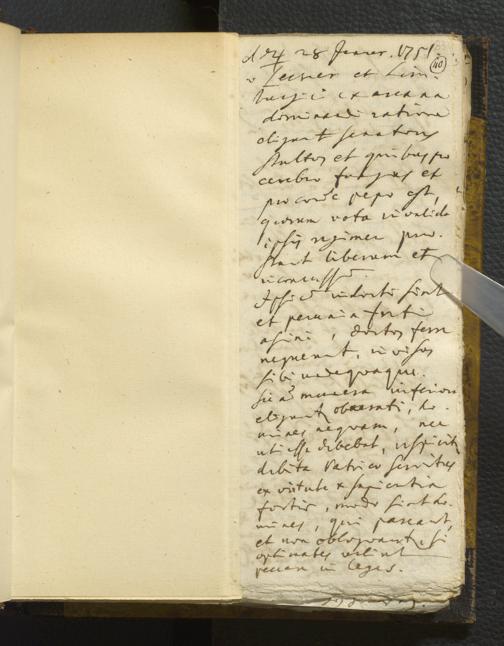 d. 24 28 Januar. 1751.
40
Lecner et Lim
burgii ex arcana
dominandi ratione
eligunt senatores
stultos et quibus pro
cerebro fungus et
pro corde pepo est,
quorum vota invalida
ipsis regimen prae
stant liberum et
inconcussum.
Ipsi cum indocti sint
et pecunia forti
asini, doctos ferre
nequeunt, invisos
sibi undequaque.
sic ad munera inferiora
eligunt obaerati, ho-
mines nequam, nec
uti esse debebat, respicitur
debita Patriae servitus
ex virtute et sapientia
fortis, modo sint ho-
mines, qui pareant,
et non obloquantur, si
optimates velint
peccare in leges.